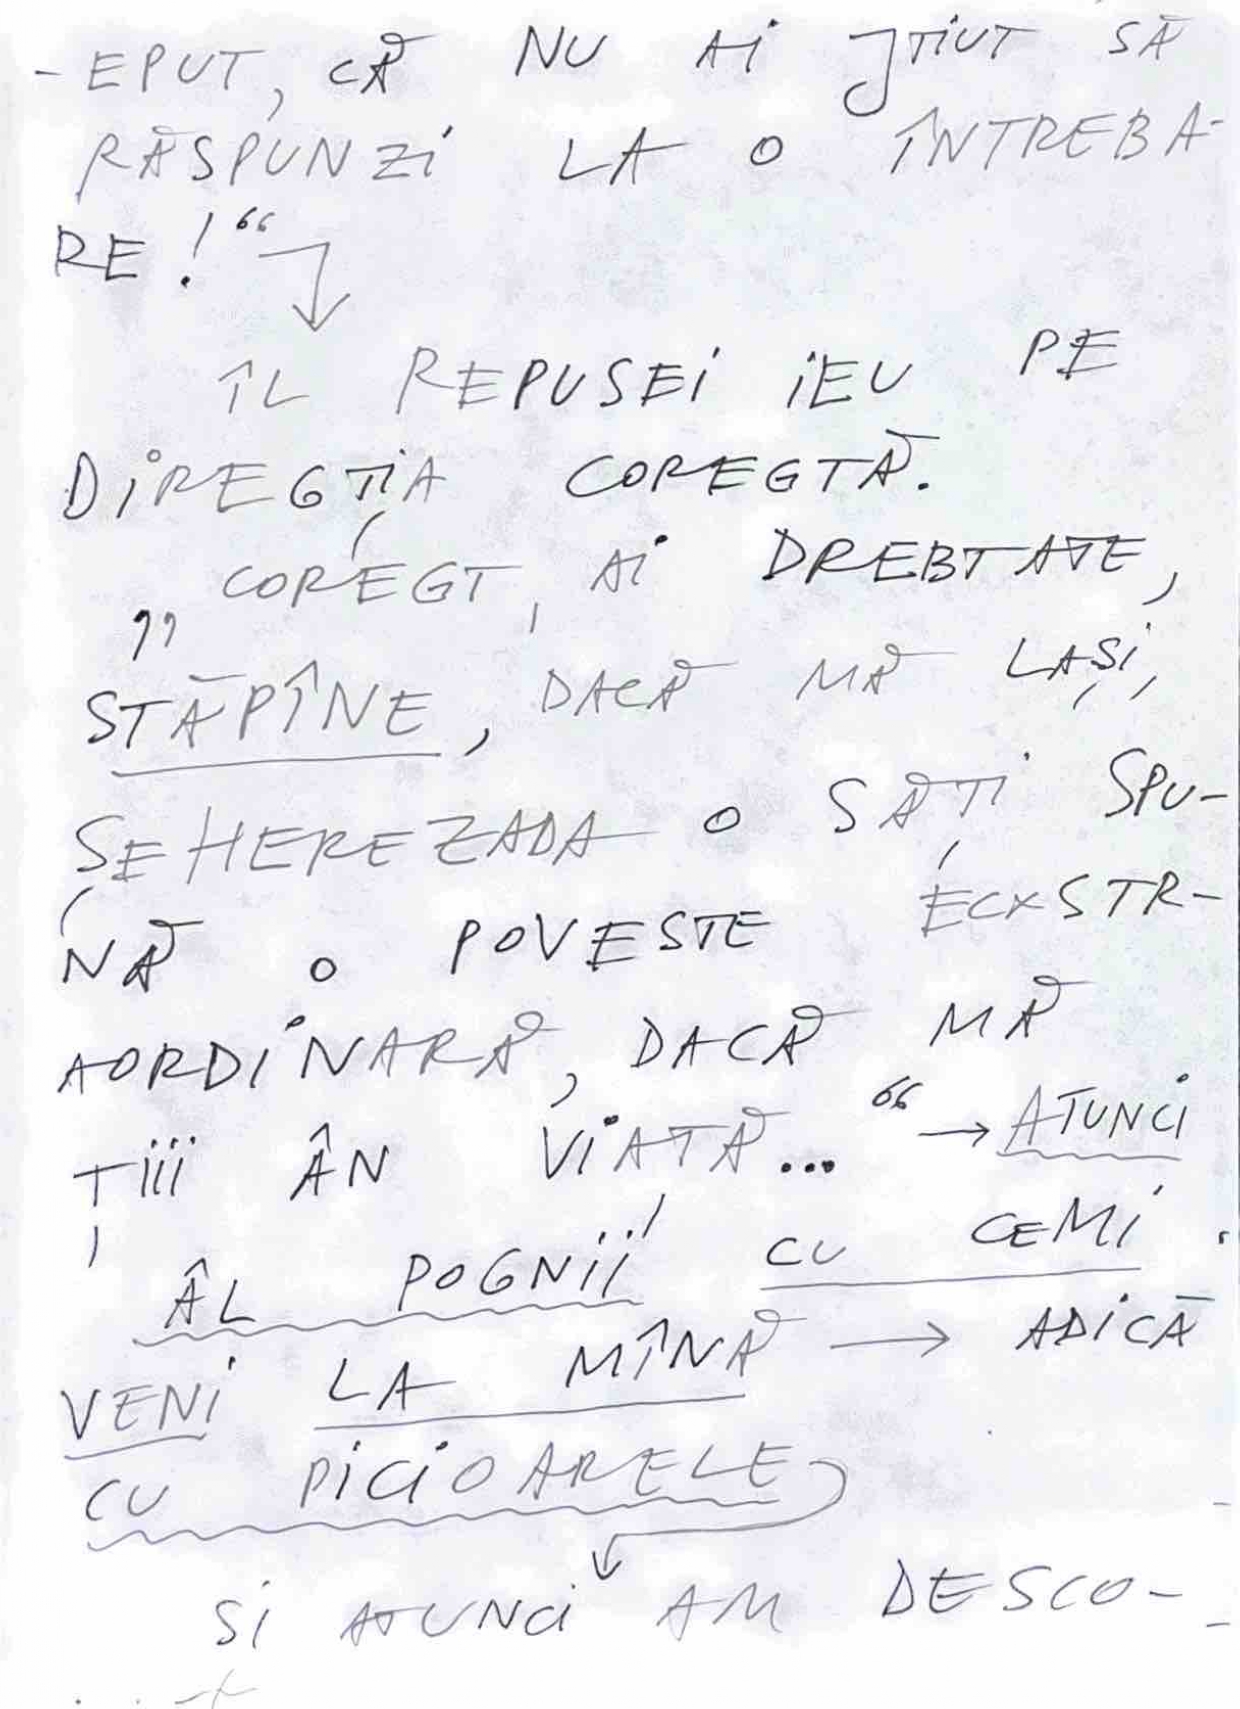 - EPUT, CĂ NU AI ȘTIUT SĂ
RĂSPUNZI LA O ÎNTREBA-
RE!“
ÎL REPUSEI IEU PE
DIREGȚIA COREGTĂ.
„COREGT, AI DREBTATE,
STĂPÎNE, DACĂ MĂ LAȘI,
ȘEHEREZADA O SĂȚI SPU-
NĂ O POVESTE ECXSTR-
AORDINARĂ, DACĂ MĂ
ȚIII ÂN VIATĂ...“ → ATUNCI
ÂL POGNII! CU CEMI
VENI LA MÎNĂ → ADICĂ
CU PICIOARELE
SI ATUNCI AM DESCO-